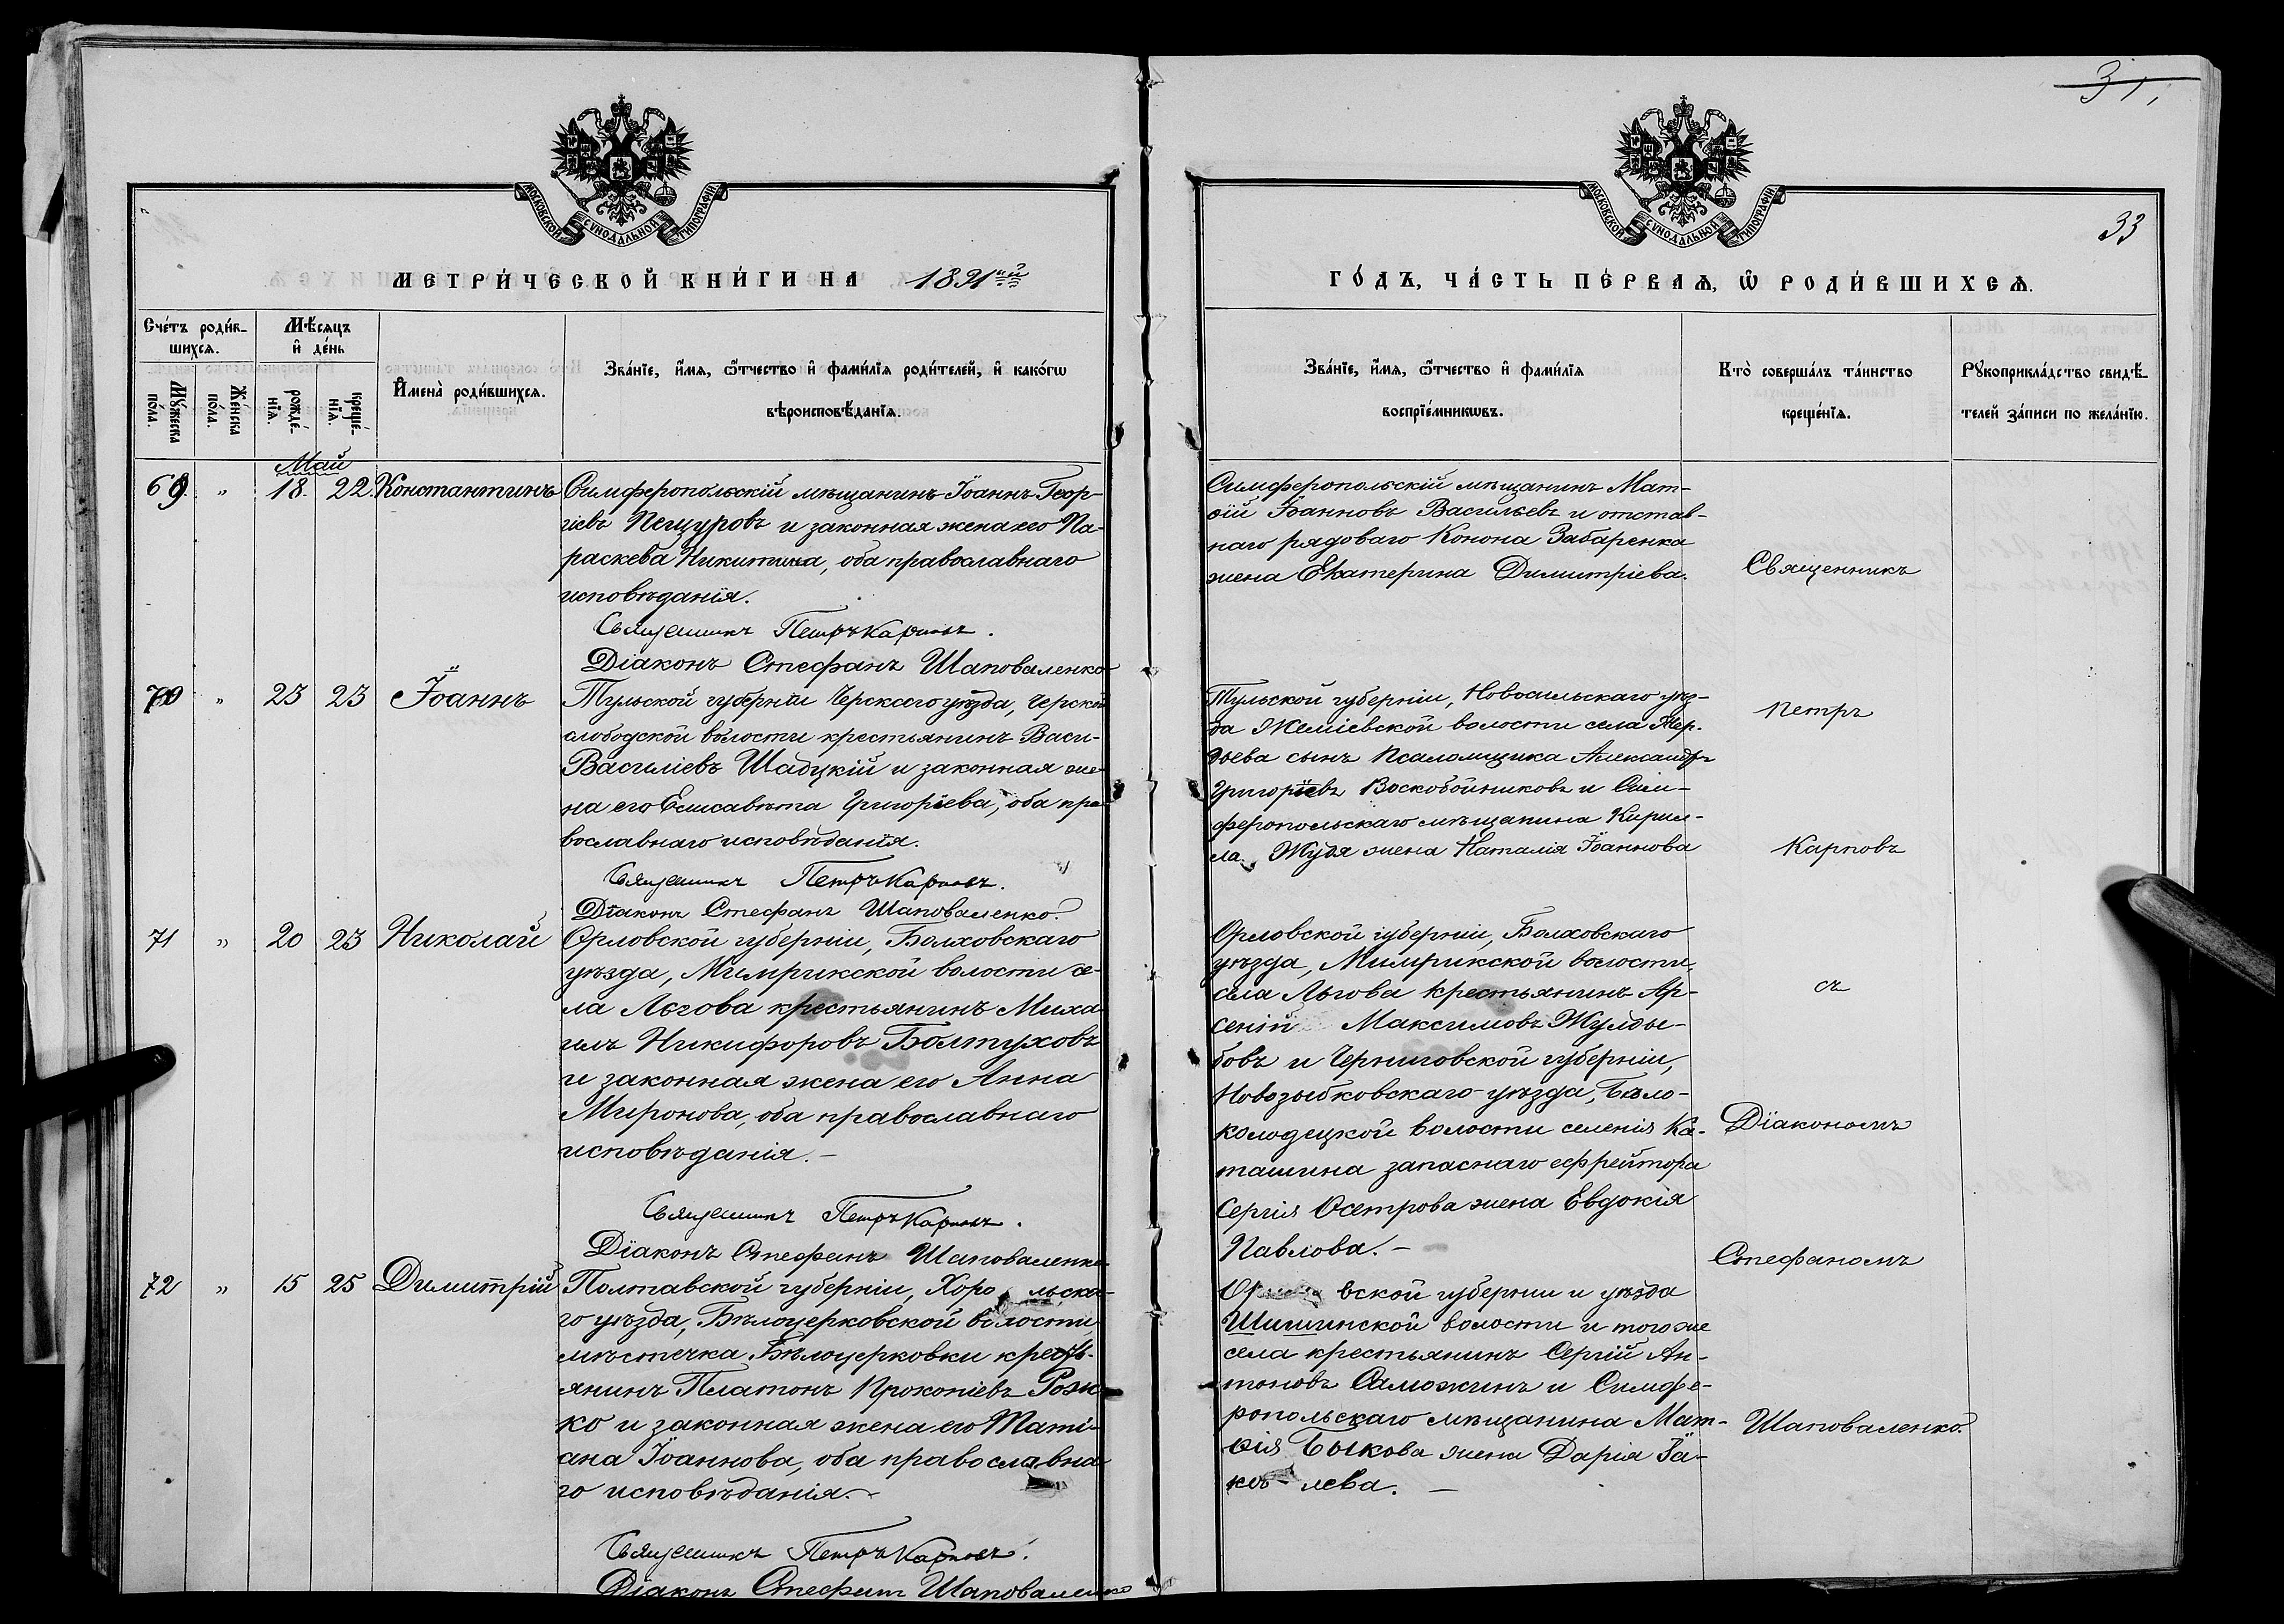 31,
МОСКОВСКОЙ СѴНОДАЛЬНОЙ ТИПОГРАФІИ
МОСКОВСКОЙ СѴНОДАЛЬНОЙ ТИПОГРАФІИ
33
МЕТРИ́ЧЕСКОЙ КНИ́ГИ НА 1891ый
ГО́ДЪ, ЧА́СТЬ ПЕ́РВАѦ, Ѡ҆ РОДИ́ВШИХСѦ.
Сче́тъ роди́в-
шихсѧ.
Мѣ́сѧцъ
и҆ де́нь
Мꙋ́жеска
по́ла.
Же́нска
по́ла.
рожде́-
нїѧ.
креще́-
нїѧ.
И҆мена̀ роди́вшихсѧ.
Зва́нїе, и҆́мѧ, ѻ҆́тчество и҆ фами́лїѧ роди́телей, и҆ како́гѡ
вѣроисповѣ́данїѧ.
Зва́нїе, и҆́мѧ, ѻ҆́тчество и҆ фами́лїѧ
воспрїе́мникѡвъ.
Кто̀ соверша́лъ та́инство
креще́нїѧ.
Рꙋкоприкла́дство свидѣ́-
телей за́писи по жела́нїю.
Май
69. " 18. 22. Константинъ
Симферопольскій мѣщанинъ Іоаннъ Геор-
гіевъ Пещуровъ и законная жена его Па-
раскева Никитина, оба православнаго
исповѣданія.
Священникъ Петръ Карповъ.
Діаконъ Стефанъ Шаповаленко
Симферопольскій мѣщанинъ Мат-
ѳій Іоанновъ Васильевъ и отстав-
наго рядоваго Конона Забаренка
жена Екатерина Димитріева.
Священникъ
70 " 23 23 Іоаннъ
Тульской губерніи Черскаго уѣзда, Черской
слободской волости крестьянинъ Васи-
Василіевъ Шадцкій и законная же-
на его Елисавѣта Григоріева, оба пра-
вославнаго исповѣданія.
Священникъ Петръ Карповъ.
Діаконъ Стефанъ Шаповаленко.
Тульской губерніи, Новосильскаго уѣз-
да волости села
сынъ Псаломщика Александръ
Григоріевъ Воскобойниковъ и Сим-
феропольскаго мѣщанина Кирил-
ла Жудя жена Наталія Іоаннова
Петръ
Карповъ
71 " 20 23 Николай
Орловской губерніи, Болховскаго
уѣзда, Мимрикской волости се-
ла Льгова крестьянинъ Миха-
илъ Никифоровъ Болтуховъ
и законная жена его Анна
Миронова, оба православнаго
исповѣданія.–
Священникъ Петръ Карповъ.
Діаконъ Стефанъ Шаповаленко
Орловской губерніи, Болховскаго
уѣзда, Мимрикской волости,
села Льгова крестьянинъ Ар-
сеній Максимовъ Жулды-
бовъ и Черниговской губерніи,
Новозыбковскаго уѣзда, Бѣло-
колодецкой волости селенія Ка-
ташина запаснаго ефрейтора
Сергія Осетрова жена Евдокія
Павлова.–
съ
Діакономъ
Стефаномъ
72 " 15 25 Димитрій
Полтавской губерніи, Хоро льска-
го уѣзда, Бѣлоцерковской волости,
мѣстечка Бѣлоцерковки кресть-
янинъ Платонъ Прокопіевъ
и законная жена его Таті-
ана Іоаннова, оба православна-
го исповѣданія.–
Священникъ Петръ Карповъ.
Діаконъ Стефанъ Шаповаленко
вской губерніи и уѣзда
Шишинской волости и того же
села крестьянинъ Сергій Ан-
тоновъ Саможинъ и Симфе-
ропольскаго мѣщанина Мат-
ѳія Быкова жена Дарія Іа-
ков-лева.–
Шаповаленко.